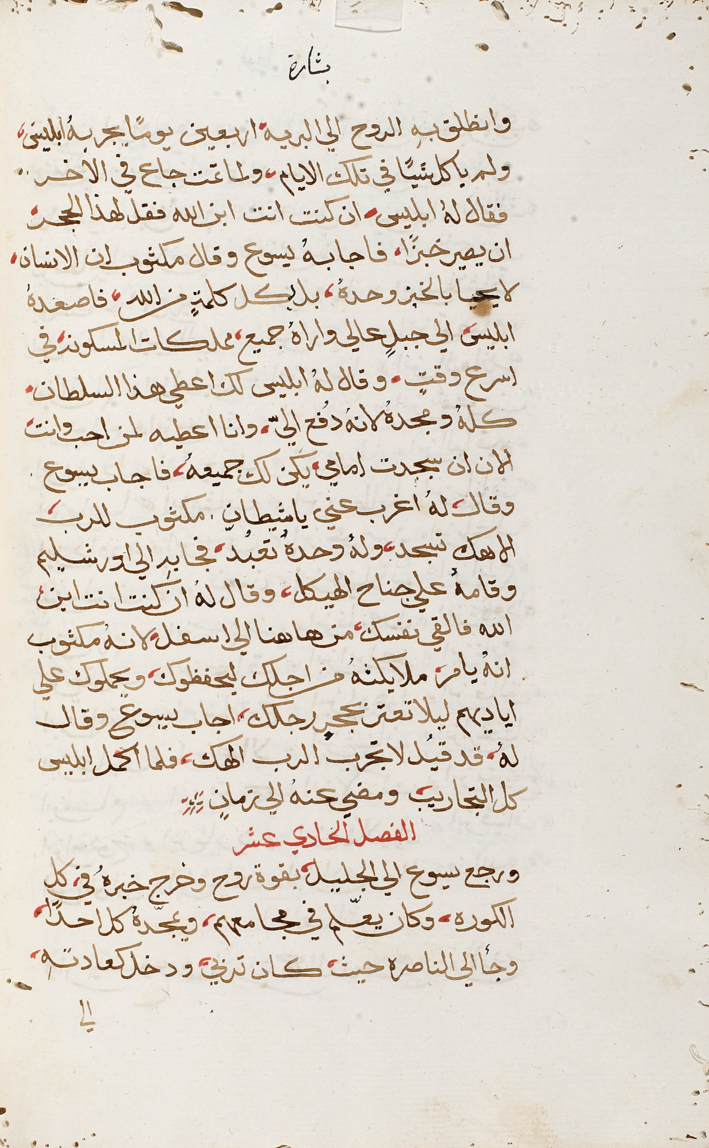 بشارة
وانطلق به الروح الي البرية اربعين يومًا يجربهُ ابليس
ولم ياكل شيًا في تلك الايام ولما تمت جاع في الاخر
فقال لهُ ابليس ان كنت انت ابن الله فقل لهذا الحجر
ان يصير خبزًا فاجابهُ يسوع وقال مكتوب ان الانسان
لا يحيا بالخبز وحدهُ بل بكل كلمةٍ من الله فاصعدهُ
ابليس الي جبلٍ عالي واراهُ جميع مملكات المسكونه في
اسرع وقتٍ وقال لهُ ابليس لك اعطي هذا السلطان
كلهُ ومجدهُ لانهُ دُفع اليّ وانا اعطيه لمن احب وانت
الان ان سجدت امامي يكن لك جميعهُ فاجاب يسوع
وقال لهُ اغرب عني ياشيطان مكتوب للرب
الاهك تسجد ولهُ وحدهُ تعبُد فجابه الي اورشليم
وقامهُ علي جناح الهيكل وقال لهُ ان كنت انت ابن
الله فالقي نفسك من هاهنا الي اسفل لانهُ مكتوب
انهُ يامر ملايكتهُ من اجلك ليحفظوك ويحملوك علي
اياديهم ليلا تعتر بحجرٍ رجلك اجاب يسوع وقال
لهُ قد قيُل لا تجرب الرب الهك فلما اكمل ابليس
كل التجاريب ومضي عنهُ الي زمانٍ
الفصل الحادي عشر
ورجع يسوع الي الجليل بقوة روح وخرج خبرهُ في كل
الكوره وكان يعلّم في مجامعهم ويمجّدهُ كل احدًا
وجأ الي الناصرة حيث كان تربي ودخل كعادته
الي